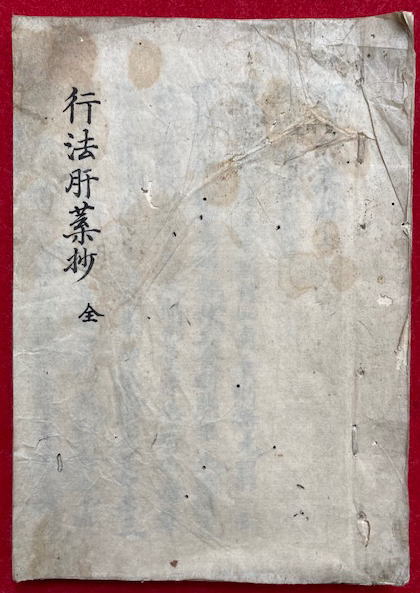 行法肝葉抄 全